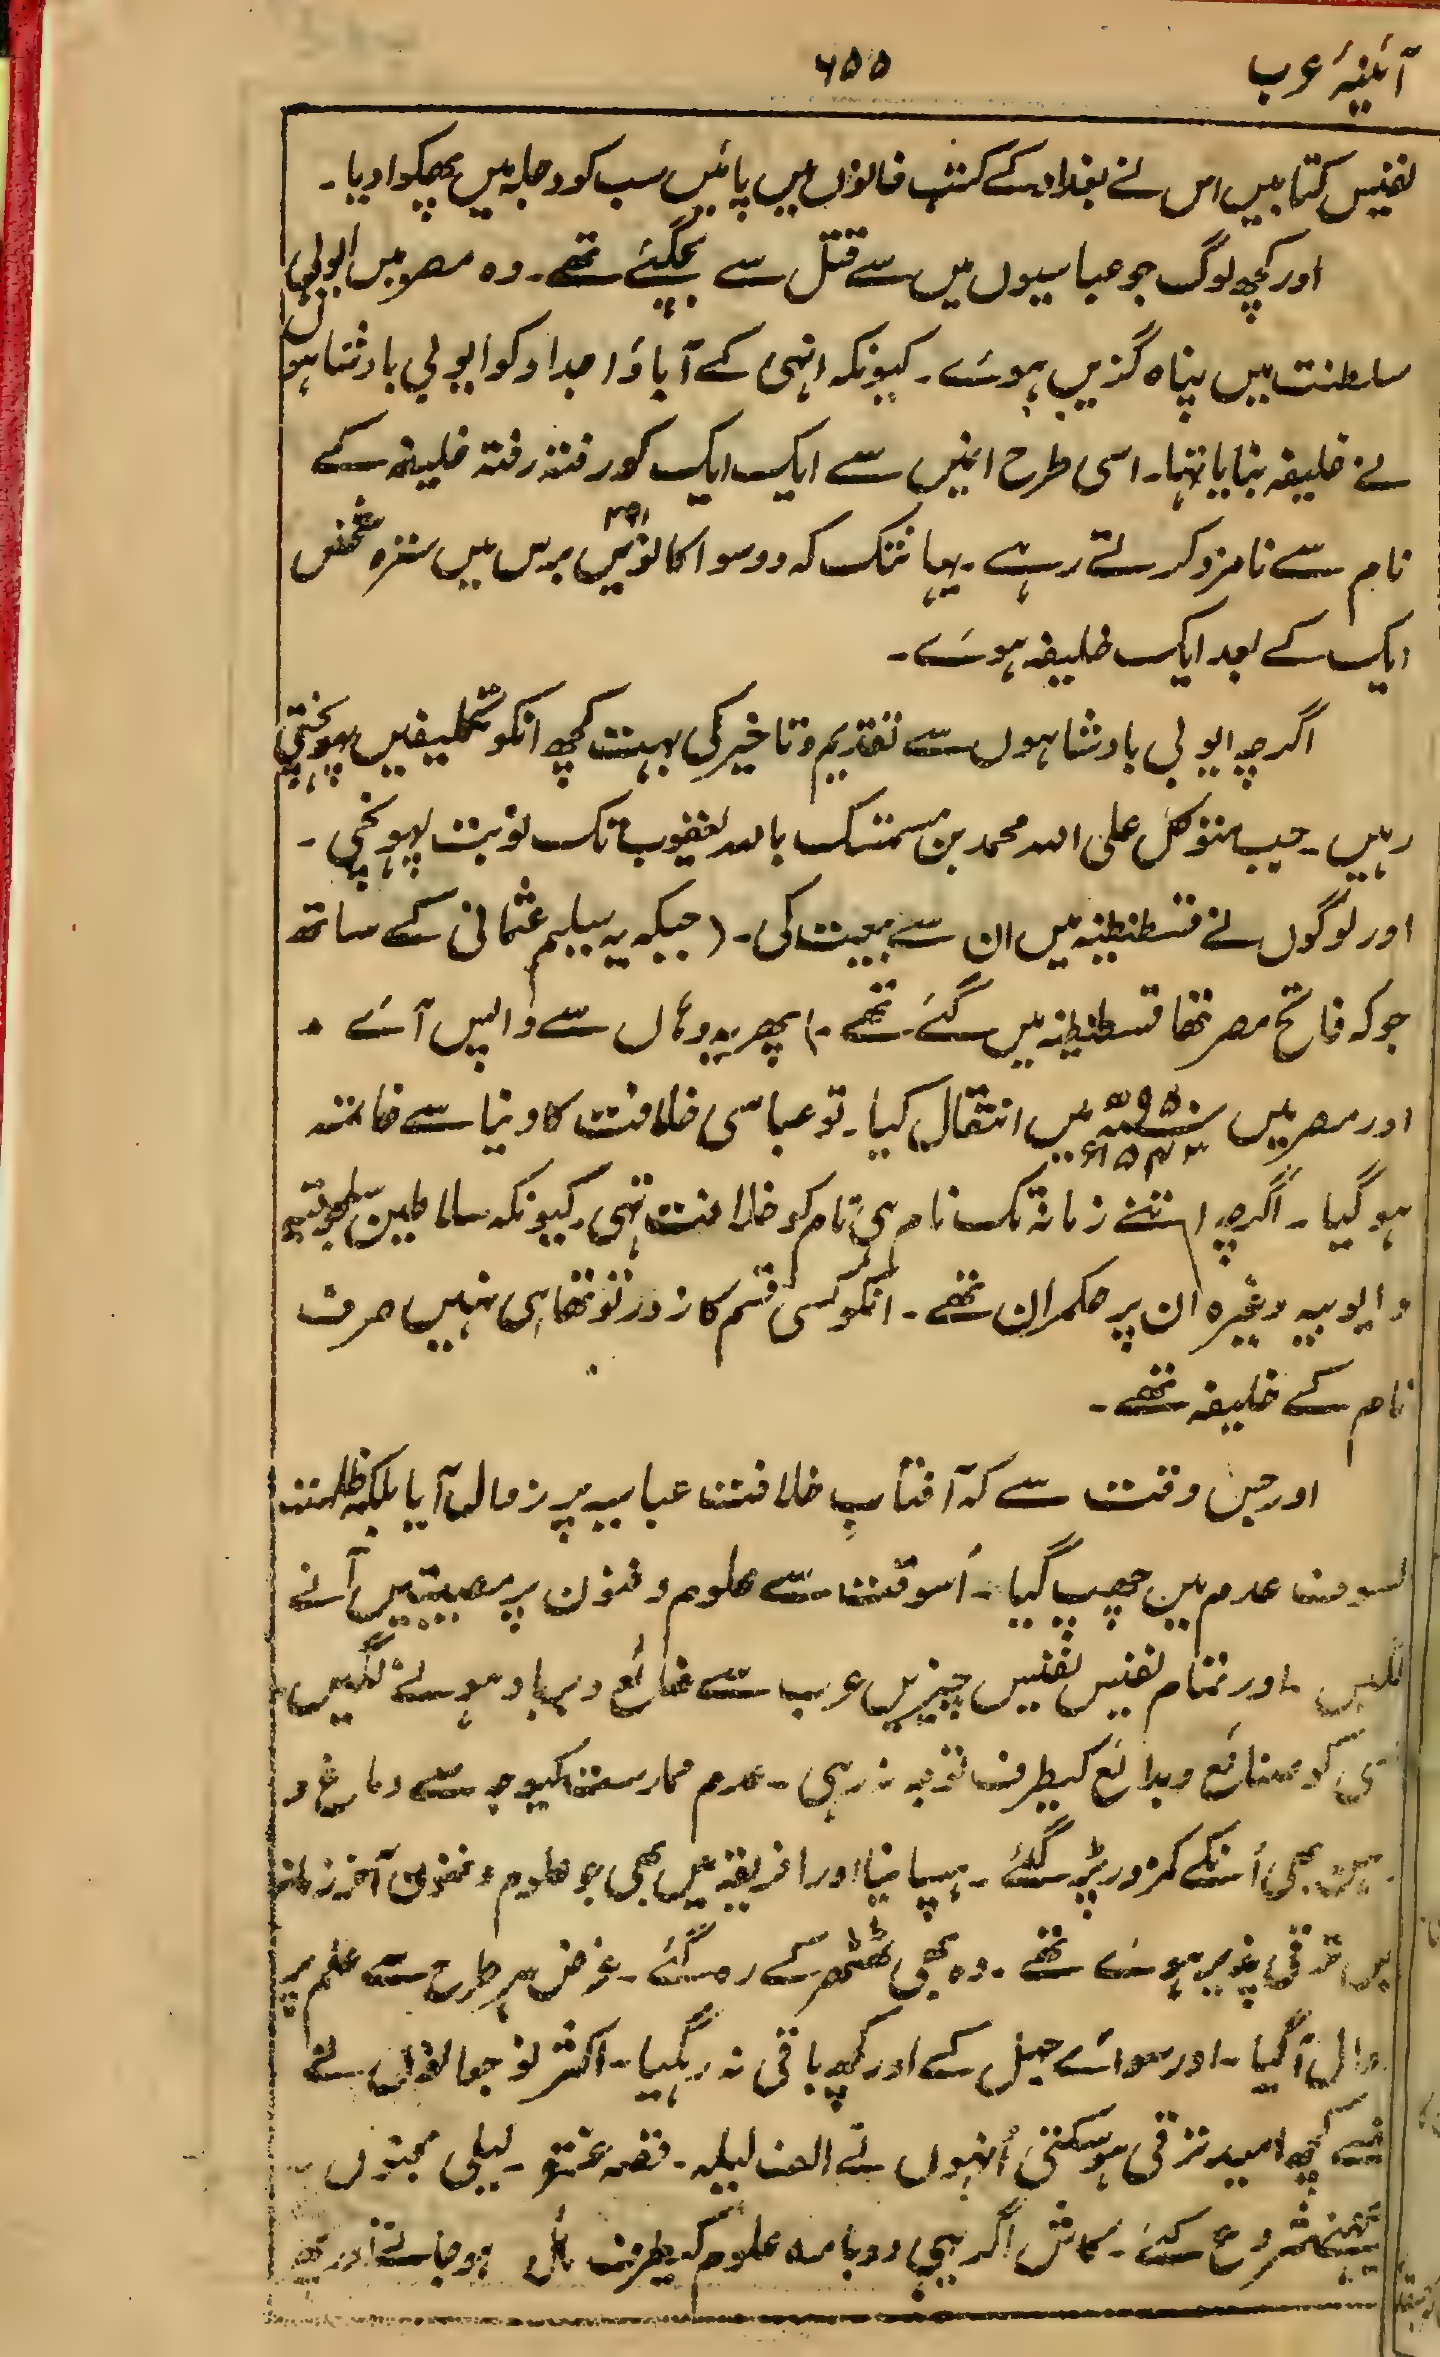 آئینۂ عرب
۶۵۵
نفیس کتابیں اس نے بغداد کے کتب خانوں میں پائیں سب کو دجلہ میں پھکوا دیا۔
اور کچھ لوگ جو عباسیوں میں سے قتل سے بچگئے تھے۔ وہ مصر میں ایوبی
سلطنت میں پناہ گزیں ہوئے۔ کیونکہ انہی کے آباؤ اجداد کو ایوبی بادشاہوں
نے خلیفہ بنایا تہا۔ اسی طرح انیں سے ایک ایک کو رفتہ رفتہ خلیفہ کے
نام سے نامزد کرتے رہے۔ یہانتک کہ دوسو اکانویں ۲۹۱ برس میں سترہ شخص
ایک کے بعد ایک خلیفہ ہوئے۔
اگرچہ ایوبی بادشاہوں سے تقدیم و تاخیر کی بہت کچھ انکو تکلیفیں پہونچتی
رہیں۔ جب متوکل علی اللہ محمد بن مستمسک باللہ یعقوب تک نوبت پہونچی۔
اور لوگوں نے قسطنطنیہ میں ان سے بیعت کی۔ (جبکہ یہ سلیم عثمانی کے ساتھ
جو کہ فاتح مصر تھا قسطنطنیہ میں گئے تھے۔) پھر یہ وہاں سے واپس آئے ۔
اور مصر میں سنہ ۹۵۰ھ ۱۵۴۳ء میں انتقال کیا۔ تو عباسی خلافت کا دنیا سے خاتمہ
ہو گیا۔ اگرچہ اتنے زمانہ تک نام ہی نام کو خلافت تہی۔ کیونکہ سلاطین سلجوقیہ
و ایوبیہ وغیرہ ان پر حکمران تھے۔ انکو کسی قسم کا زور تو تھا ہی نہیں صرف
نام کے خلیفہ تھے۔
اور جس وقت سے کہ آفتابِ خلافت عباسیہ پر زوال آیا بلکہ ظلمت
کسوف عدم میں چھپ گیا۔ اُسوقت سے علوم و فنون پر مصیبتیں آنے
لگیں ۔ اور تمام نفیس نفیس چیزیں عرب سے ضائع و برباد ہونے لگیں
کسی کو صنائع و بدائع کیطرف توجہ نہ رہی۔ عدم ممارست کیوجہ سے دماغ و
بھی اُنکے کمزور پڑ گئے۔ ہسپانیا اور افریقہ میں بھی جو علوم و فنون آخر زمانہ
میں ترقی پذیر ہوئے تھے۔ وہ بھی ٹھٹھر کے رہ گئے۔ غرض ہر طرح سے علم پر
زوال آگیا۔ اور سوائے جہل کے اور کچھ باقی نہ رہگیا۔ اکثر نوجوانوں نے
جنسے کچھ امید ترقی ہوسکتی اُنہوں نے الف لیلہ۔ قصہ عنتر۔ لیلی مجنوں
پڑہنے شروع کئے۔ کاش اگر یہی دوبارہ علوم کیطرف مائل ہو جاتے اور